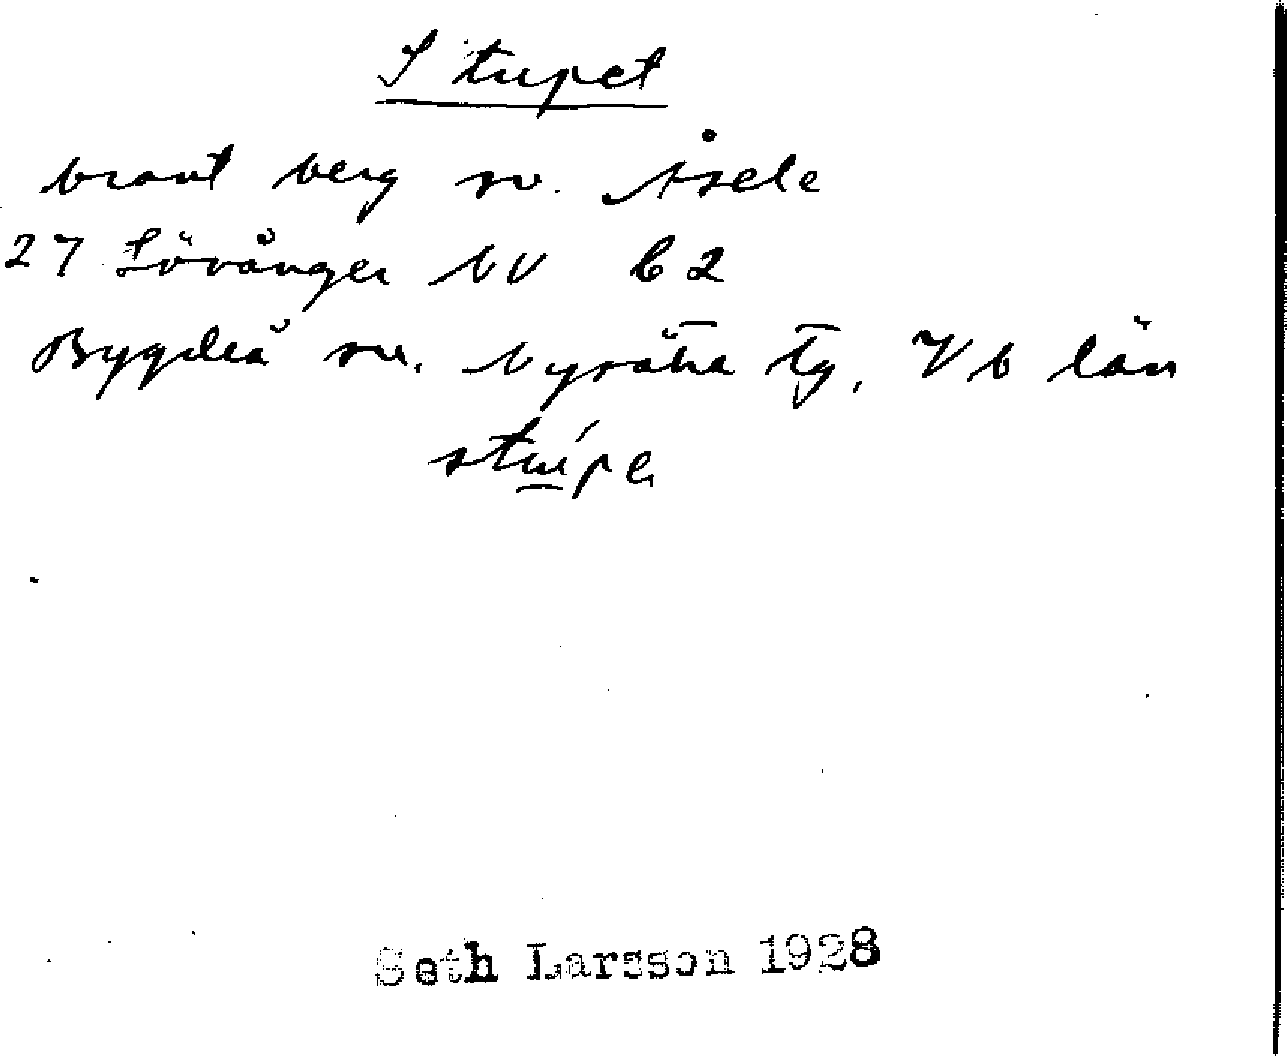 Stupet
brant berg sv. Åsele
27 Lövånger NV C2
Bygdeå sn. Nysätra tg, Vb län
Seth Larsson 1928